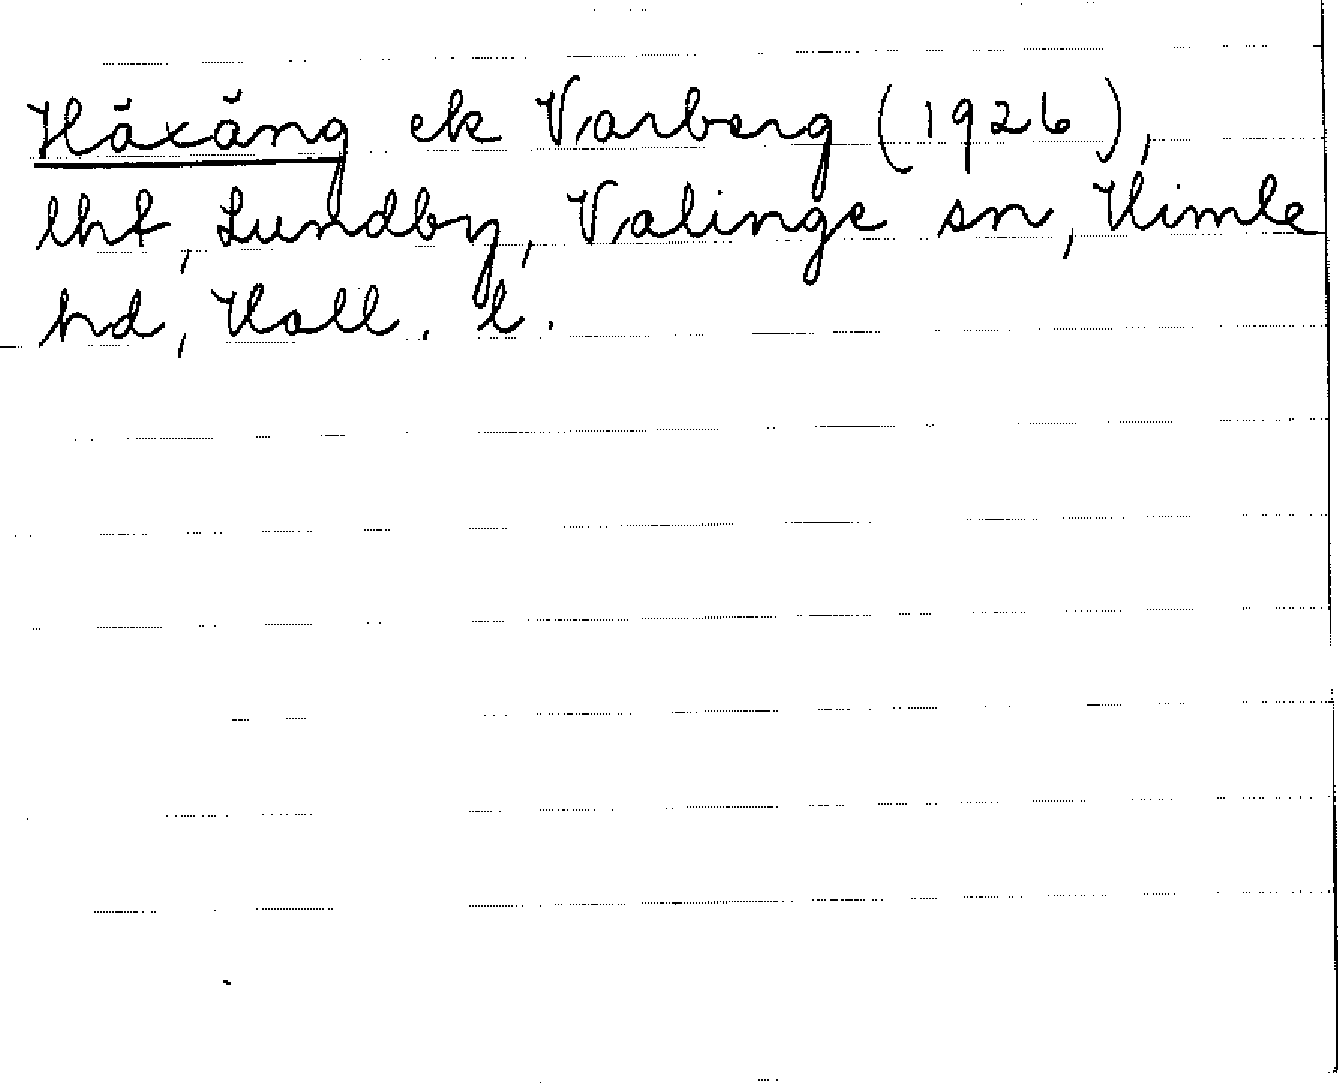 Häxäng ek Varberg (1926),
lht, Lundby, Valinge sn, Himle
hd, Hall. l.